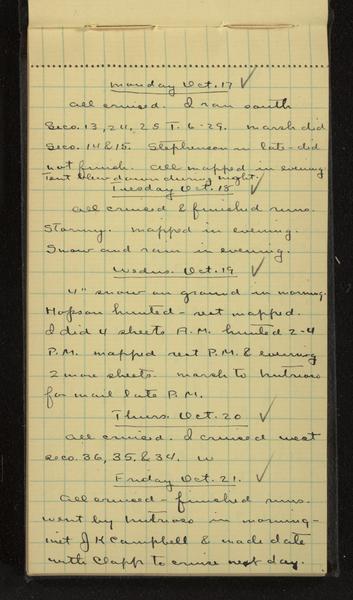 Monday Oct. 17 ✓
All cruised. I ran south
Secs. 13, 24, 25 T. 6-29. Marsh did
Secs. 14 & 15. Stephenson in late - did
not finish. All mapped in evening
Tent blew down during night.
Tuesday Oct. 18 ✓
All cruised & finished runs.
Stormy. Mapped in evening.
Snow and rain in evening.
Wednes. Oct. 19 ✓
4" snow on ground in morning.
hunted - rest mapped.
I did 4 sheets A.M. hunted 2-4
P.M. mapped rest P.M. & evening
2 more sheets. Marsh to Nutrioso
for mail late P.M.
Thurs. Oct. 20 ✓
All cruised. I cruised west
secs. 36, 35, & 34. w
Friday Oct. 21. ✓
All cruised - finished runs.
Went by Nutrioso in morning -
met J K Campbell & made date
with Clapp to cruise next day.